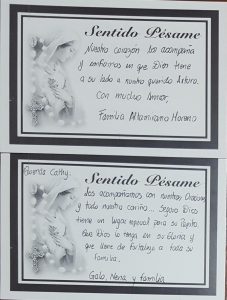 Sentido Pésame
Nuestro corazón los acompaña
y confiamos en que Dios tiene
a su lado a nuestro querido Arturo.
Con mucho Amor,
Familia Altamirano Moreno
Querida Cathy.
Sentido Pésame
Los acompañamos con nuestras Oraciones
y todo nuestro cariño... Seguro Dios
tiene un lugar especial para su Papito.
Que Dios lo tenga en su Gloria y
que llene de Fortaleza a toda su
Familia.
Galo, Nena y familia